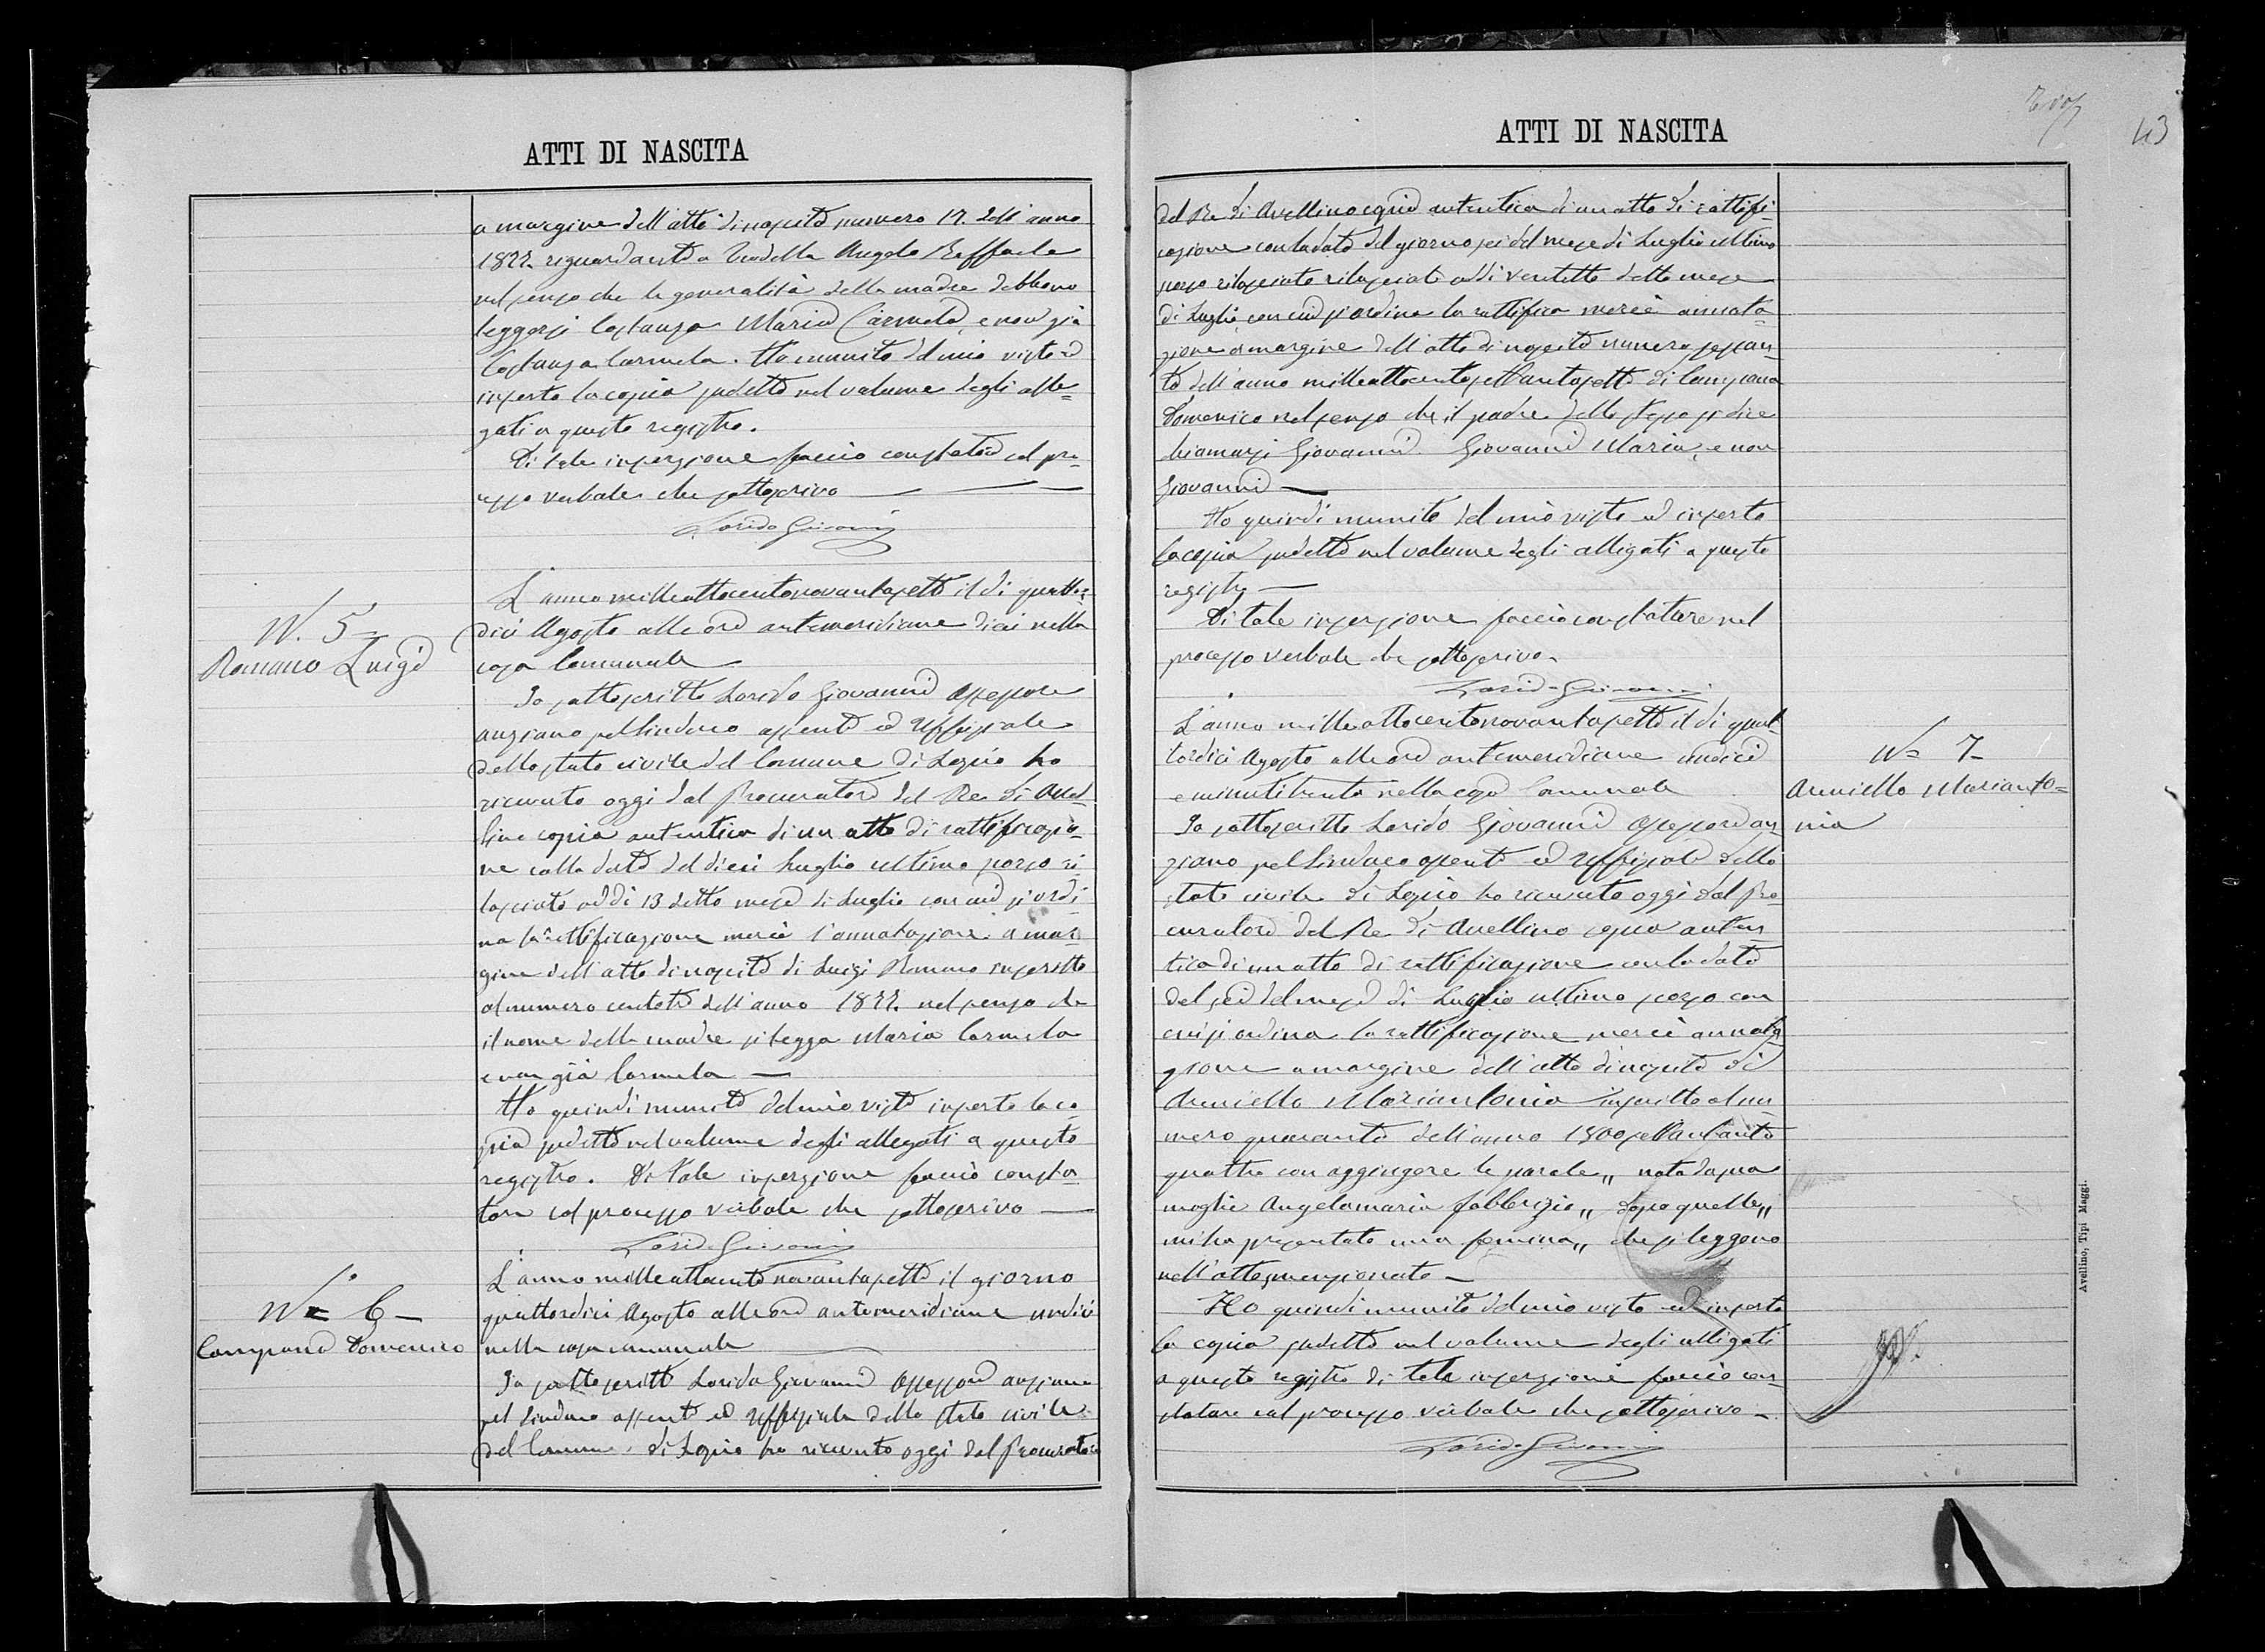 ATTI DI NASCITA
a margine dell'atto di nascita numero 17. dell'anno
1877. riguardante Angelo Raffaele
nel senso che le generalità della madre debbono
leggersi Costanza Maria Carmela, e non già
Costanza Carmela. Ho munito del mio visto ed
inserto la copia sudetta nel volume degli alle=
gati a questo registro.
Di tale inserzione faccio constatare col pro=
cesso verbale che sottoscrivo
Lorido Giovanni
N. 5
Romano Luigi
L'anno milleottocentonovantasette il di quattor=
dici Agosto alle ore antemeridiane dieci nella
casa Comunale
Io sottoscritto Lorido Giovanni Assessore
anziano pel Sindaco assente ed Uffiziale
dello stato civile del Comune di Lapio ho
ricevuto oggi dal Procuratore del Re di Avel=
lino copia autentica di un atto di rattificazio=
ne colla data del dieci Luglio ultimo scorso ri=
lasciato addì 13 detto mese di Luglio con cui si ordi=
na la rettificazione mercè l'annotazione a mar=
gine dell'atto di nascita di Luigi Romano inscritto
al numero dell'anno 1877. nel senso che
il nome della madre si legga Maria Carmela
e non già Carmela
Ho quindi munito del mio visto inserto la co=
pia sudetta nel volume degli allegati a questo
registro. Di tale inserzione faccio consta=
tare col processo verbale che sottoscrivo
Lorido Giovanni
N= 6
Campana Domenico
L'anno milleottocentonovantasette il giorno
quattordici Agosto alle ore antemeridiane undici
nella casa comunale
Io sottoscritto Lorido Giovanni Assessore anziano
pel Sindaco assente ed Uffiziale dello stato civile
del Comune di Lapio ho ricevuto oggi dal Procuratore
43
ATTI DI NASCITA
del Re di Avellino copia autentica di un atto di rattifi=
cazione con la data del giorno sei del mese di Luglio ultimo
scorso rilasciato rilasciato addì detto mese
di Luglio con cui si ordina la rattifica mercè annota=
zione a margine dell'atto di nascita numero sessan=
ta dell'anno milleottocentosettantasette di Campana
Domenico nel senso che il padre dello stesso si dice
chiamarsi Giovanni Giovanni Maria, e non
Giovanni
Ho quindi munito del mio visto ed inserto
la copia sudetta nel volume degli alligati a questo
registro
Di tale inserzione faccio constatare nel
processo verbale che sottoscrivo.
Lorido Giovanni
L'anno milleottocentonovantasette il di quat=
tordici Agosto alle ore antemeridiane undici
e minuti trenta nella casa Comunale
N= 7
Anniello Marianto=
nia
Io sottoscritto Lorido Giovanni Assessore an
ziano pel Sindaco assente ed Uffiziale dello
stato civile di Lapio ho ricevuto oggi dal Pro=
curatore del Re di Avellino copia auten=
tica di un atto di rattificazione con la data
del sei del mese di Luglio ultimo scorso con
cui si ordina la rattificazione mercè annota
zione a margine dell'atto di nascita di
Anniello Mariantonia inscritto al nu=
mero quaranta dell'anno 1800settantanta
quattro con aggiungere le parole „ nata da sua
moglie Angelamaria Fabbrizio „ dopo quelle „
mi ha presentato una femina „ che si leggono
nell'atto menzionato
Ho quindi munito del mio visto ed inserto
la copia sudetta nel volume degli alligati
a questo registro di tale inserzione faccio con=
statare col processo verbale che sottoscrivo
Lorido Giovanni
Avellino, Tipi Maggi.